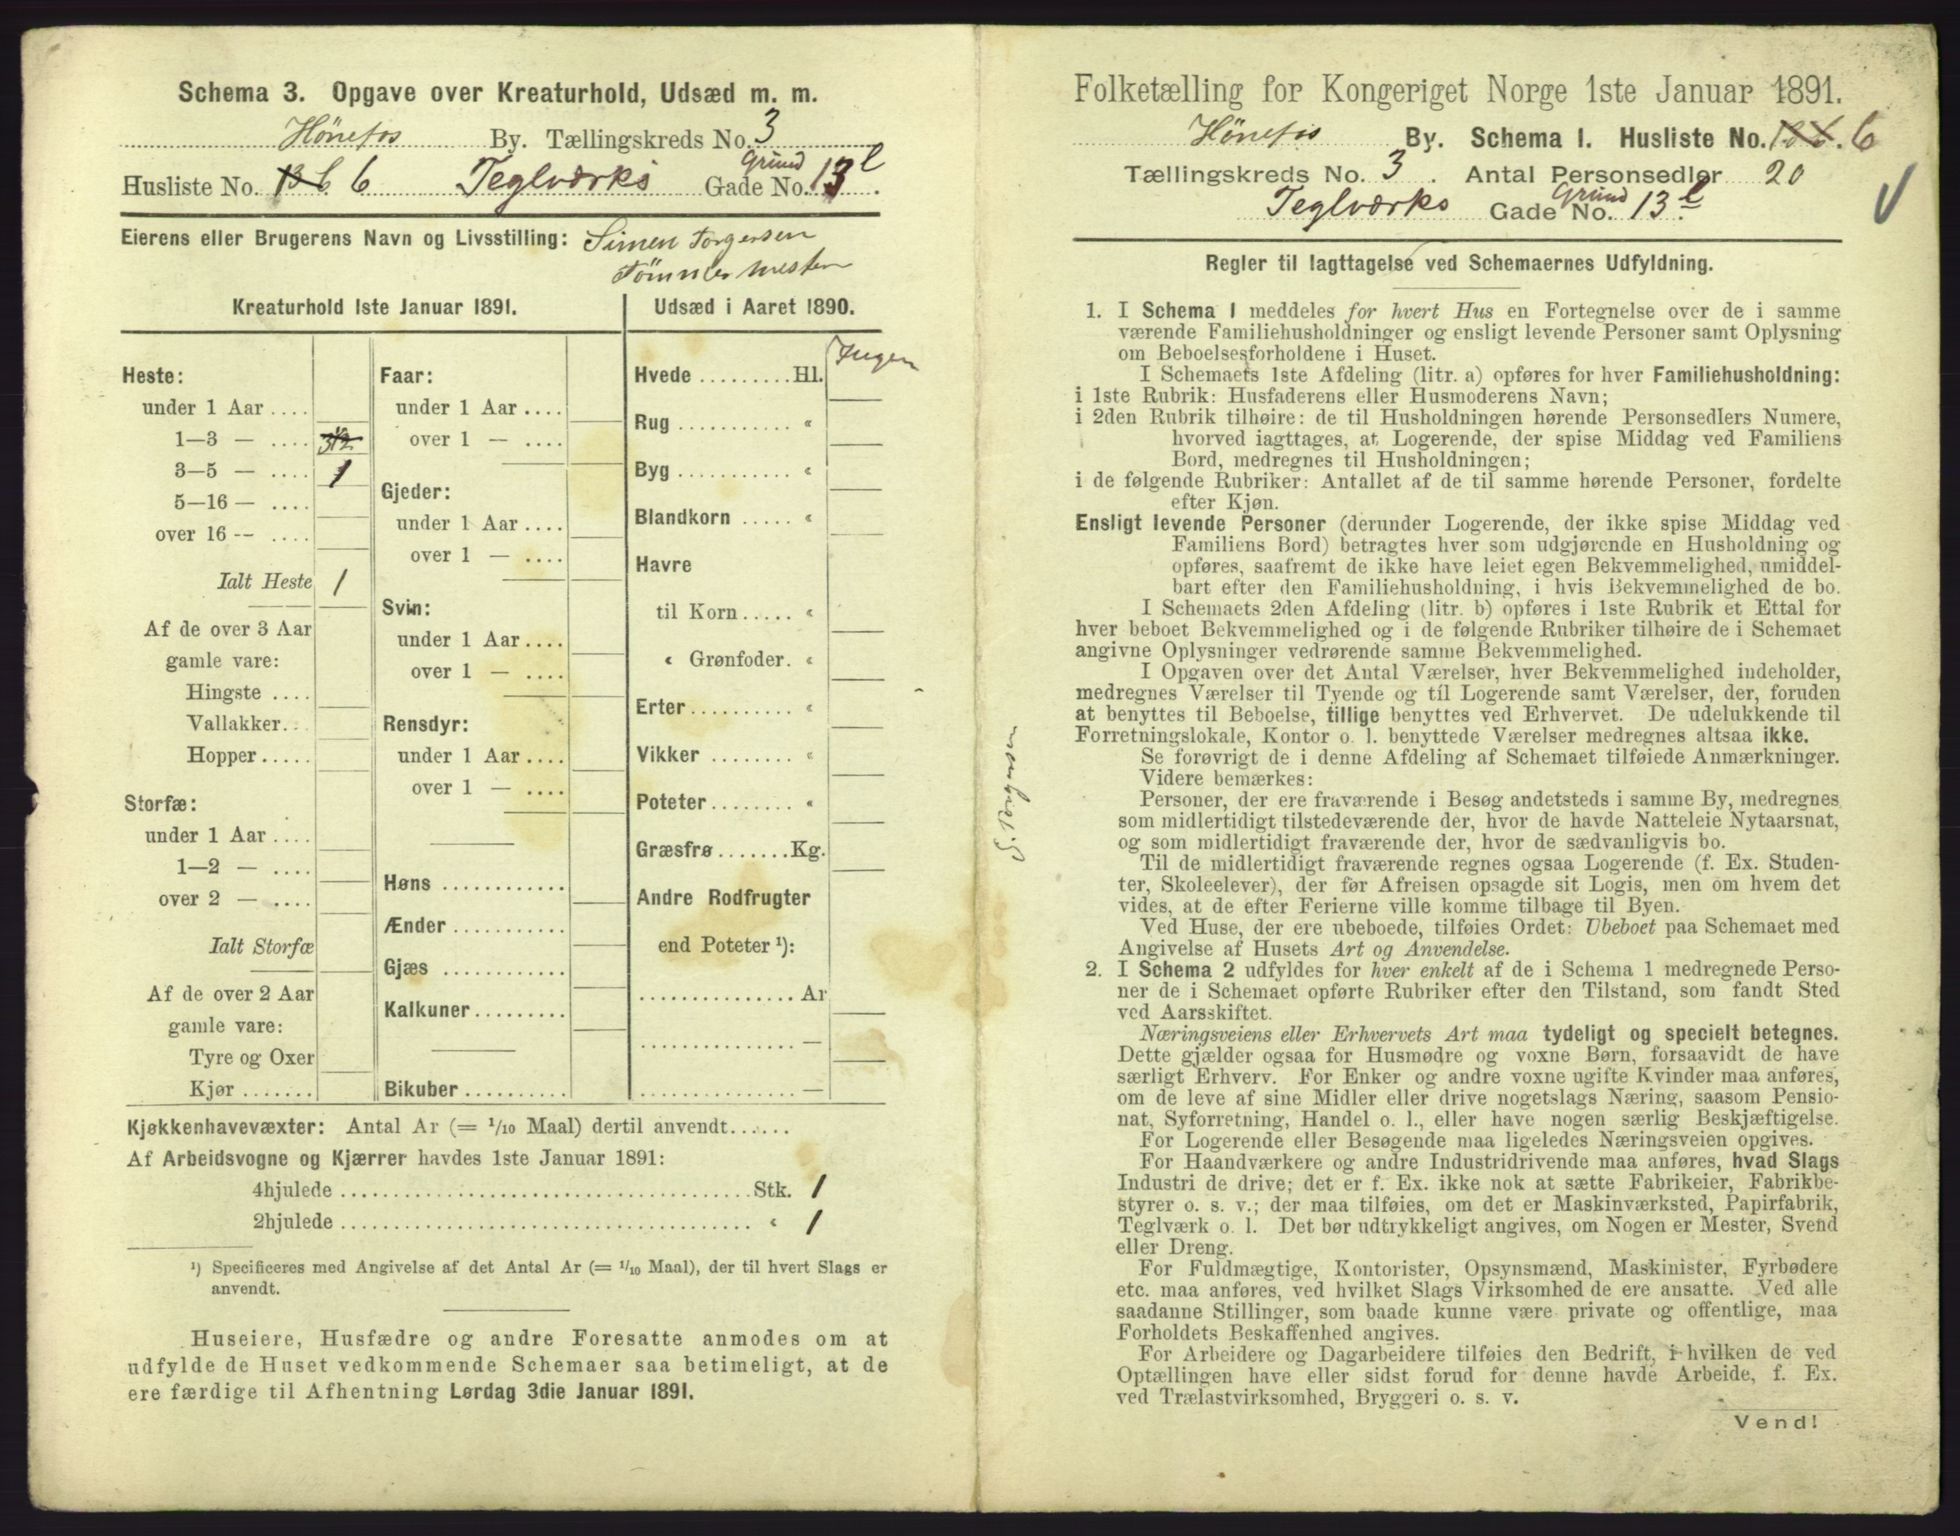 Schema 3. Opgave over Kreaturhold, Udsæd m. m.
Hönefos By. Tællingskreds No. 3
Husliste No. 13 b 6 Teglværks Gade Grund No. 13 l.
Eierens eller Brugerens Navn og Livsstilling: Simen Torgersen
Tömmermester
Kreaturhold 1ste Januar 1891.
Heste:
under 1 Aar ....
1—3 — .... 3 1/2
3—5 — .... 1
5—16 — ....
over 16 -- ....
Ialt Heste 1
Af de over 3 Aar
gamle vare:
Hingste ....
Vallakker...
Hopper.....
Storfæ:
under 1 Aar ....
1—2 — ....
over 2 — ....
Ialt Storfæ
Af de over 2 Aar
gamle vare:
Tyre og Oxer
Kjør .......
Faar:
under 1 Aar ....
over 1 — ....
Gjeder:
under 1 Aar ....
over 1 — ....
Svin:
under 1 Aar ....
over 1 — ....
Rensdyr:
under 1 Aar ....
over 1 — ....
Høns ............
Ænder ...........
Gjæs ............
Kalkuner.........
Bikuber ..........
Udsæd i Aaret 1890.
Ingen
Hvede .........Hl.
Rug ........... «
Byg ........... «
Blandkorn ..... «
Havre
til Korn..... «
« Grønfoder. «
Erter.......... «
Vikker ........ «
Poteter........ «
Græsfrø.......Kg.
Andre Rodfrugter
end Poteter ¹):
...............Ar
............... —
............... —
Kjøkkenhavevæxter: Antal Ar (= 1/10 Maal) dertil anvendt......
Af Arbeidsvogne og Kjærrer havdes 1ste Januar 1891:
4hjulede ........................................Stk. 1
2hjulede ........................................ « 1
¹) Specificeres med Angivelse af det Antal Ar (= 1/10 Maal), der til hvert Slags er
anvendt.
Huseiere, Husfædre og andre Foresatte anmodes om at
udfylde de Huset vedkommende Schemaer saa betimeligt, at de
ere færdige til Afhentning Lørdag 3die Januar 1891.
S. Torgersen
Folketælling for Kongeriget Norge 1ste Januar 1891.
Hönefos By. Schema I. Husliste No. 13 b. 6
Tællingskreds No. 3. Antal Personsedler 20
Teglværks Gade Grund No. 13 l.
Regler til Iagttagelse ved Schemaernes Udfyldning.
1. I Schema I meddeles for hvert Hus en Fortegnelse over de i samme
værende Familiehusholdninger og ensligt levende Personer samt Oplysning
om Beboelsesforholdene i Huset.
I Schemaets 1ste Afdeling (litr. a) opføres for hver Familiehusholdning:
i 1ste Rubrik: Husfaderens eller Husmoderens Navn;
i 2den Rubrik tilhøire: de til Husholdningen hørende Personsedlers Numere,
hvorved iagttages, at Logerende, der spise Middag ved Familiens
Bord, medregnes til Husholdningen;
i de følgende Rubriker: Antallet af de til samme hørende Personer, fordelte
efter Kjøn.
Ensligt levende Personer (derunder Logerende, der ikke spise Middag ved
Familiens Bord) betragtes hver som udgjørende en Husholdning og
opføres, saafremt de ikke have leiet egen Bekvemmelighed, umiddel-
bart efter den Familiehusholdning, i hvis Bekvemmelighed de bo.
I Schemaets 2den Afdeling (litr. b) opføres i 1ste Rubrik et Ettal for
hver beboet Bekvemmelighed og i de følgende Rubriker tilhøire de i Schemaet
angivne Oplysninger vedrørende samme Bekvemmelighed.
I Opgaven over det Antal Værelser, hver Bekvemmelighed indeholder,
medregnes Værelser til Tyende og til Logerende samt Værelser, der, foruden
at benyttes til Beboelse, tillige benyttes ved Erhvervet. De udelukkende til
Forretningslokale, Kontor o. l. benyttede Værelser medregnes altsaa ikke.
Se forøvrigt de i denne Afdeling af Schemaet tilføiede Anmærkninger.
Videre bemærkes:
Personer, der ere fraværende i Besøg andetsteds i samme By, medregnes
som midlertidigt tilstedeværende der, hvor de havde Natteleie Nytaarsnat,
og som midlertidigt fraværende der, hvor de sædvanligvis bo.
Til de midlertidigt fraværende regnes ogsaa Logerende (f. Ex. Studen-
ter, Skoleelever), der før Afreisen opsagde sit Logis, men om hvem det
vides, at de efter Ferierne ville komme tilbage til Byen.
Ved Huse, der ere ubeboede, tilføies Ordet: Ubeboet paa Schemaet med
Angivelse af Husets Art og Anvendelse.
2. I Schema 2 udfyldes for hver enkelt af de i Schema 1 medregnede Perso-
ner de i Schemaet opførte Rubriker efter den Tilstand, som fandt Sted
ved Aarsskiftet.
Næringsveiens eller Erhvervets Art maa tydeligt og specielt betegnes.
Dette gjælder ogsaa for Husmødre og voxne Børn, forsaavidt de have
særligt Erhverv. For Enker og andre voxne ugifte Kvinder maa anføres,
om de leve af sine Midler eller drive nogetslags Næring, saasom Pensio-
nat, Syforretning, Handel o. l., eller have nogen særlig Beskjæftigelse.
For Logerende eller Besøgende maa ligeledes Næringsveien opgives.
For Haandværkere og andre Industridrivende maa anføres, hvad Slags
Industri de drive; det er f. Ex. ikke nok at sætte Fabrikeier, Fabrikbe-
styrer o. s. v.; der maa tilføies, om det er Maskinværksted, Papirfabrik,
Teglværk o. l. Det bør udtrykkeligt angives, om Nogen er Mester, Svend
eller Dreng.
For Fuldmægtige, Kontorister, Opsynsmænd, Maskinister, Fyrbødere
etc. maa anføres, ved hvilket Slags Virksomhed de ere ansatte. Ved alle
saadanne Stillinger, som baade kunne være private og offentlige, maa
Forholdets Beskaffenhed angives.
For Arbeidere og Dagarbeidere tilføies den Bedrift, i hvilken de ved
Optællingen have eller sidst forud for denne havde Arbeide, f. Ex.
ved Trælastvirksomhed, Bryggeri o. s. v.
Vend!